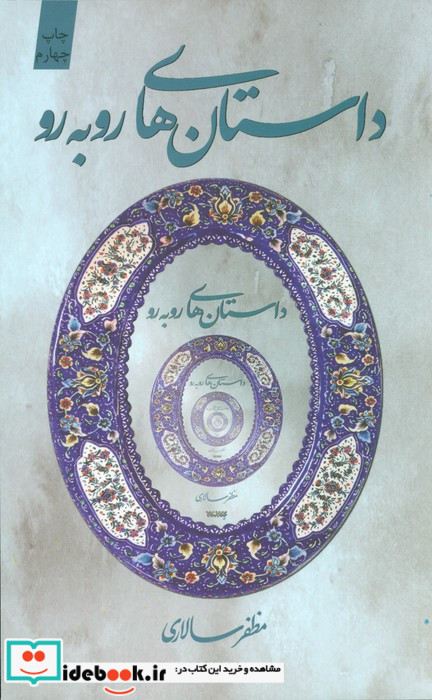 چاپ
چهارم
داستان‌های روبه‌رو
داستان‌های روبه‌رو
داستان‌های روبه‌رو
مظفر سالاری
مظفر سالاری
idebook.ir
مشاهده و خرید این کتاب در: